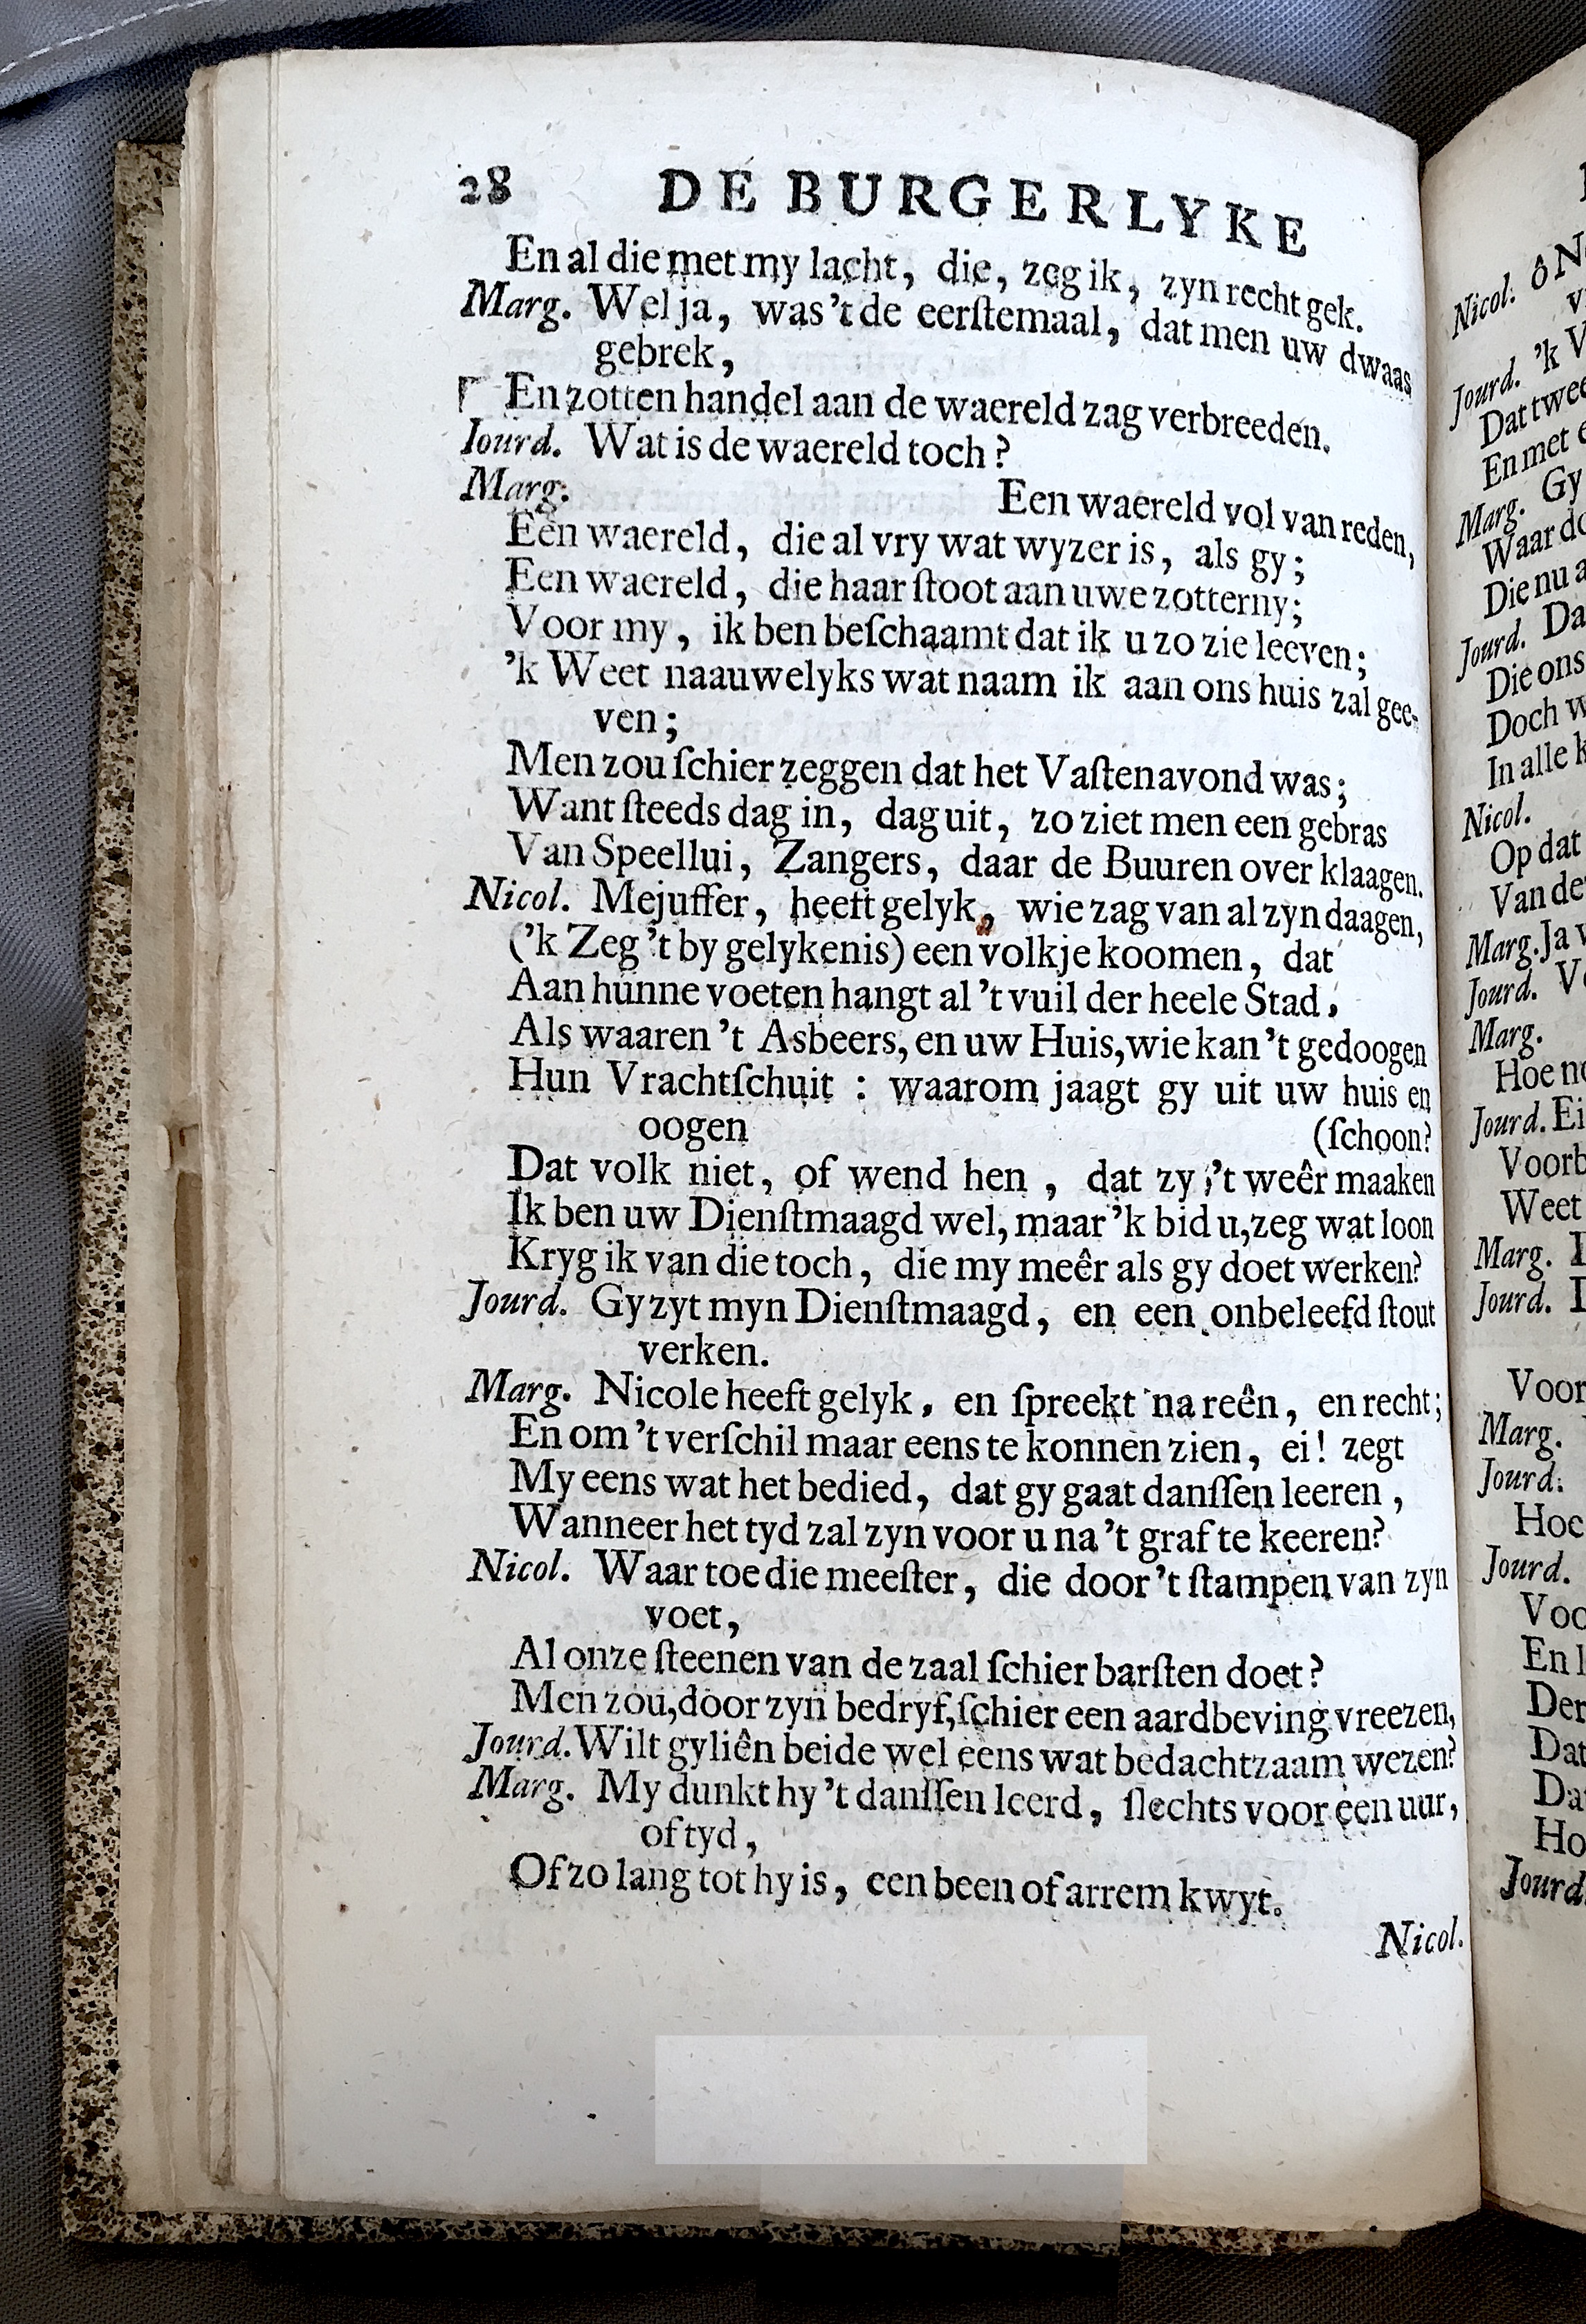 28 DE BURGERLYKE
En al die met my lacht, die, zeg ik, zyn recht gek.
Marg. Wel ja, was 't de eerſtemaal, dat men uw dwaas
gebrek,
En zotten handel aan de waereld zag verbreeden.
Iourd. Wat is de waereld toch?
Marg. Een waereld vol van reden,
Een waereld, die al vry wat wyzer is, als gy;
Een waereld, die haar ſtoot aan uwe zotterny;
Voor my, ik ben beſchaamt dat ik u zo zie leeven;
'k Weet naauwelyks wat naam ik aan ons huis zal gee-
ven;
Men zou ſchier zeggen dat het Vaſtenavond was;
Want ſteeds dag in, dag uit, zo ziet men een gebras
Van Speellui, Zangers, daar de Buuren over klaagen.
Nicol. Mejuffer, heeft gelyk, wie zag van al zyn daagen,
('k Zeg 't by gelykenis) een volkje koomen, dat
Aan hunne voeten hangt al 't vuil der heele Stad,
Als waaren 't Asbeers, en uw Huis, wie kan 't gedoogen
Hun Vrachtſchuit : waarom jaagt gy uit uw huis en
oogen (ſchoon?
Dat volk niet, of wend hen, dat zy 't weêr maaken
Ik ben uw Dienſtmaagd wel, maar 'k bid u, zeg wat loon
Kryg ik van die toch, die my meêr als gy doet werken?
Jourd. Gy zyt myn Dienſtmaagd, en een onbeleefd ſtout
verken.
Marg. Nicole heeft gelyk, en ſpreekt na reên, en recht;
En om 't verſchil maar eens te konnen zien, ei! zegt
My eens wat het bedied, dat gy gaat danſſen leeren,
Wanneer het tyd zal zyn voor u na 't graf te keeren?
Nicol. Waar toe die meeſter, die door 't ſtampen van zyn
voet,
Al onze ſteenen van de zaal ſchier barſten doet?
Men zou, door zyn bedryf, ſchier een aardbeving vreezen,
Jourd. Wilt gyliên beide wel eens wat bedachtzaam wezen?
Marg. My dunkt hy 't danſſen leerd, ſlechts voor een uur,
of tyd,
Of zo lang tot hy is, een been of arrem kwyt.
Nicol.
Nicol. ô
Jourd. 'k
Dat twee
En met
Marg. Gy
Waar
Die nu
Jourd.
Die ons
Doch
In alle
Nicol.
Op dat
Marg. Ja
Jourd.
Marg.
Hoe
Jourd. Ei
Weet
Marg.
Jourd.
Marg.
Jourd.
Jourd.
Jourd.